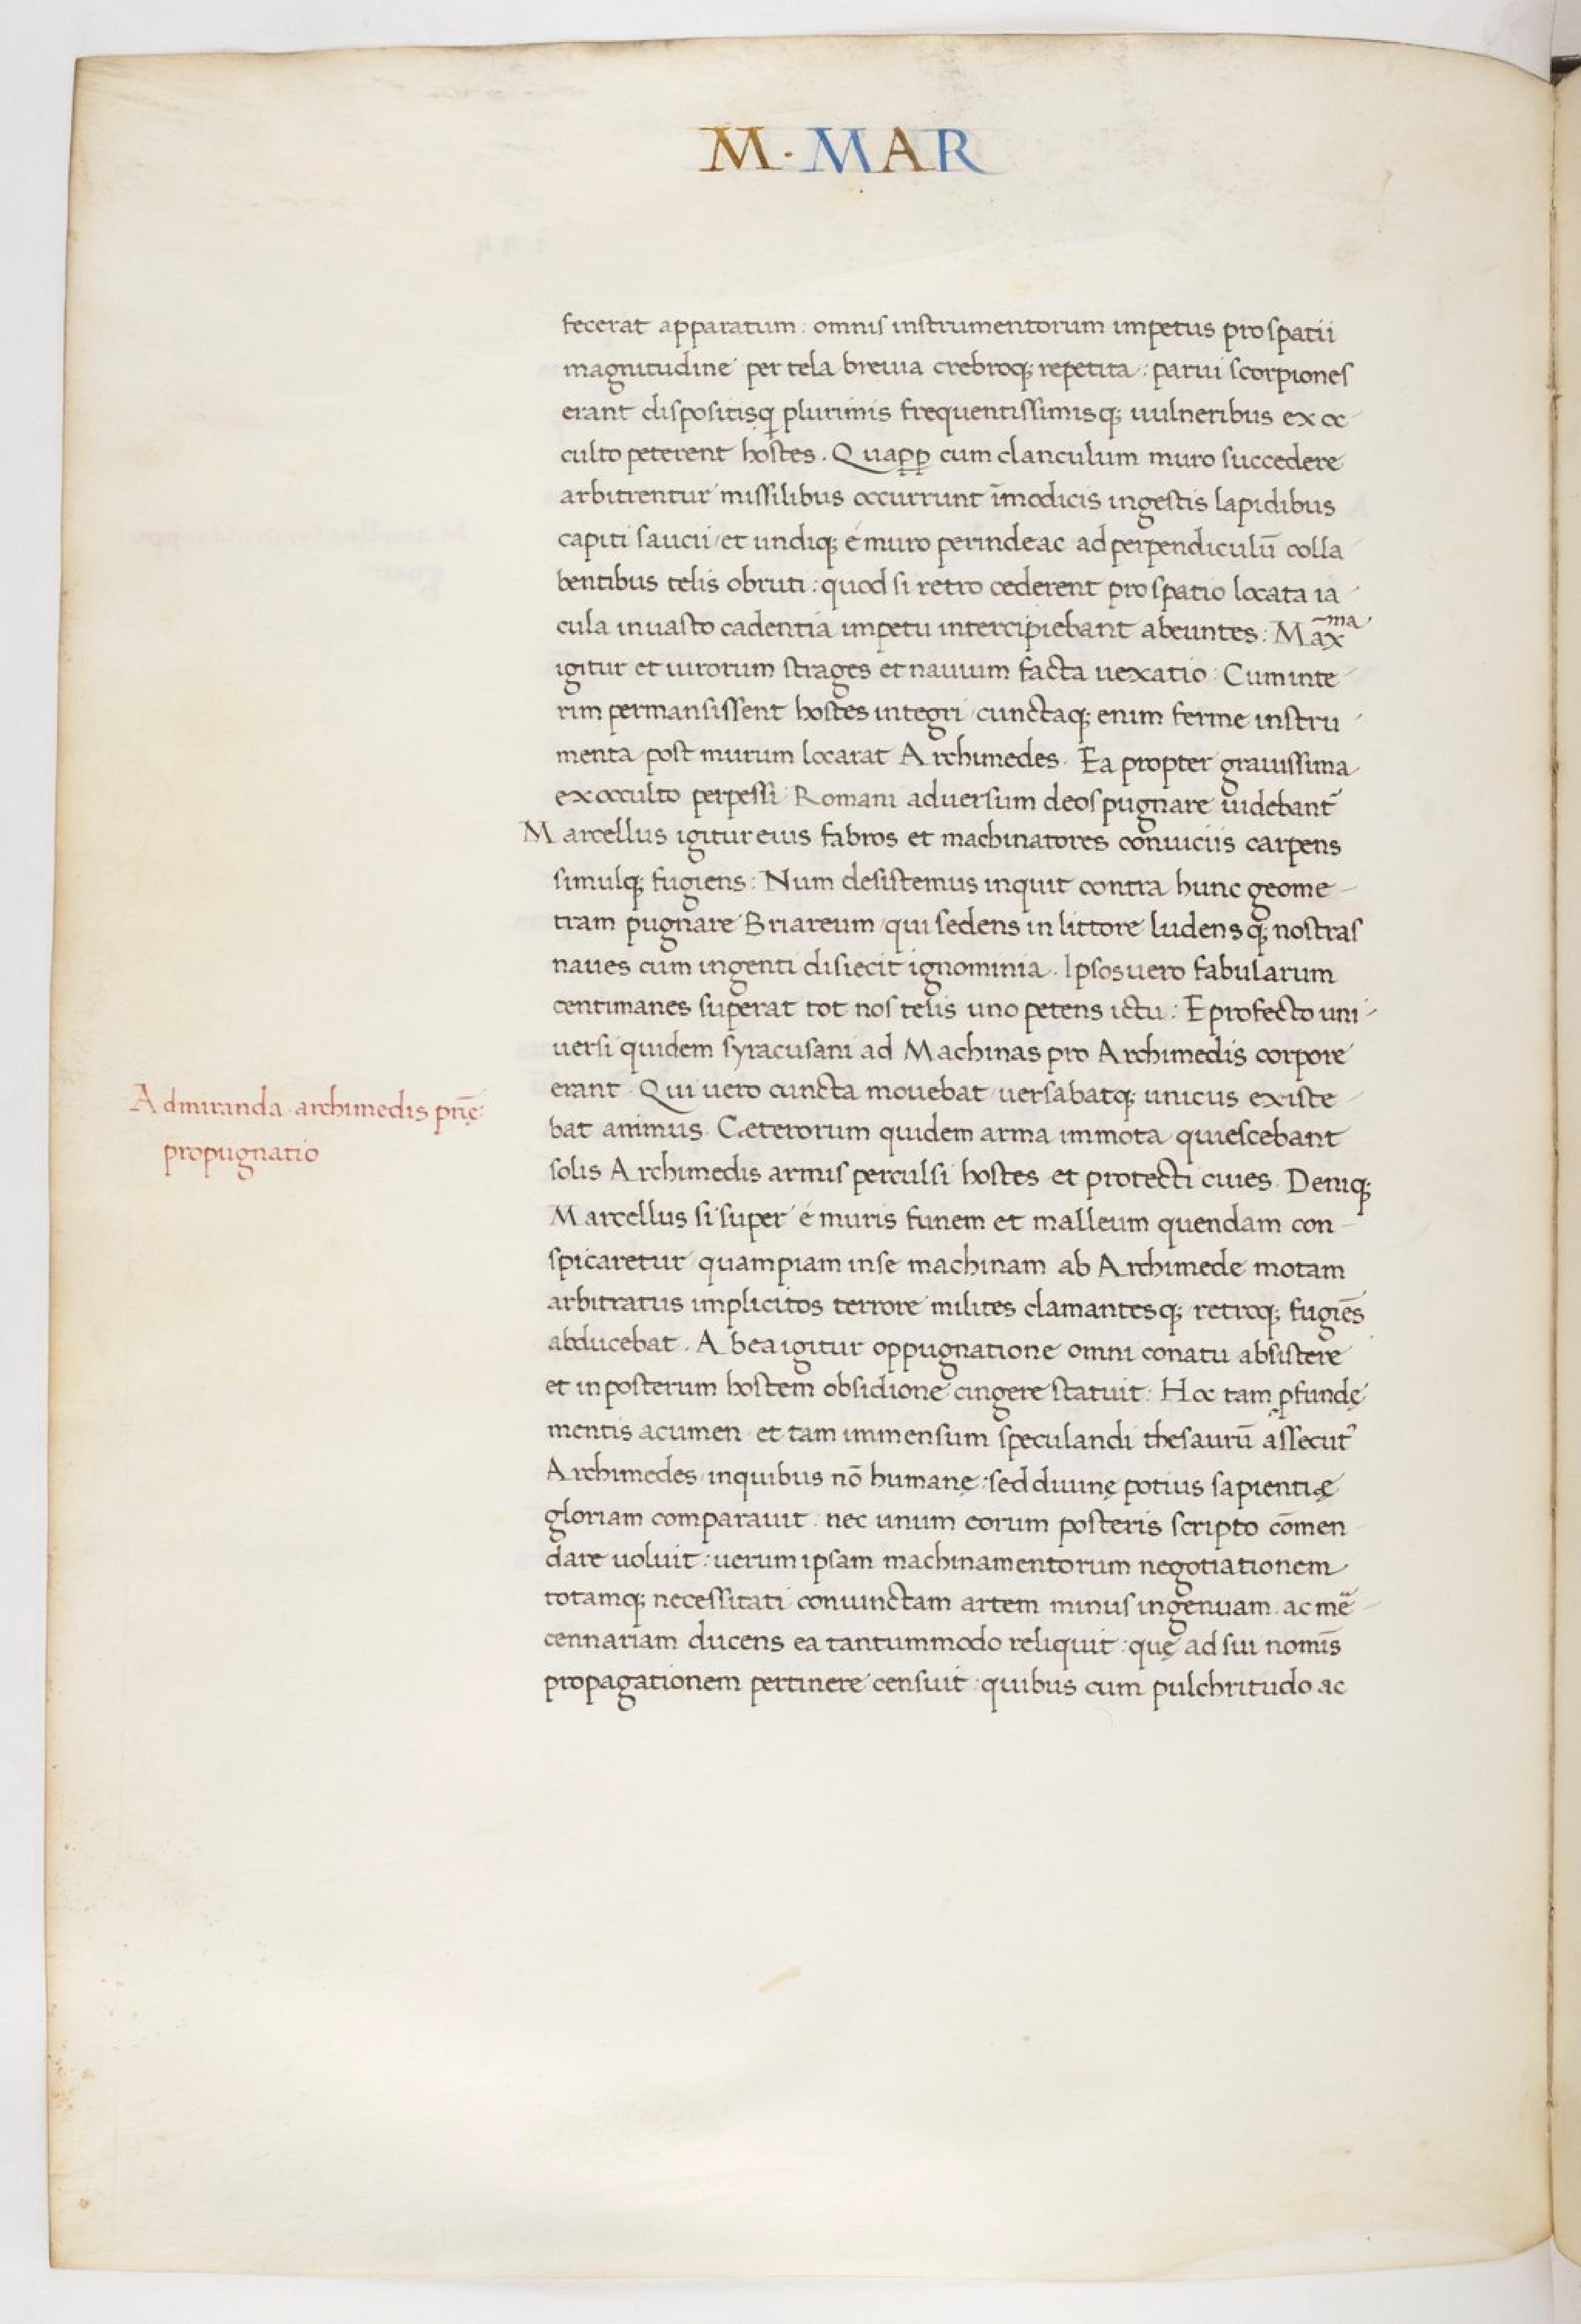 M · MAR
fecerat apparatum : omnis instrumentorum impetus pro spatii
magnitudine per tela breuia crebroq; repetita : parui scorpiones
erant dispositisq plurimis frequentissimisq; uulneribus ex oc-
culto peterent hostes . Quaꝓꝑ cum clanculum muro succedere
arbitrentur missilibus occurrunt īmodicis ingestis lapidibus
capiti saucii / et undiq; é muro perinde ac ad perpendiculū colla-
bentibus telis obruti : quod si retro cederent pro spatio locata ia-
cula in uasto cadentia impetu intercipiebant abeuntes : Māxma
igitur et uirorum strages et nauium facta uexatio : Cum inte-
rim permansissent hostes integri cunctaq; enim ferme instru-
menta post murum locarat Archimedes . Ea propter grauissima
ex occulto perpessi Romani aduersum deos pugnare uidebant̄
Marcellus igitur eius fabros et machinatores conuiciis carpens
simulq; fugiens : Num desistemus inquit contra hunc geome-
tram pugnare Briareum / qui sedens in littore ludensq; nostras
naues cum ingenti disiecit ignominia . Ipsos uero fabularum
centimanes superat tot nos telis uno petens ictu : E profecto uni-
uersi quidem syracusani ad Machinas pro Archimedis corpore
erant . Qui uero cuncta mouebat uersabatq; unicus existe-
Admiranda archimedis prię̄
propugnatio
bat animus . Cæterorum quidem arma immota quiescebant
solis Archimedis armis perculsi hostes et protecti ciues . Deniq;
Marcellus si super é muris funem et malleum quendam con-
spicaretur quampiam in se machinam ab Archimede motam
arbitratus implicitos terrore milites clamantesq; retroq; fugiēs
abducebat . Ab ea igitur oppugnatione omni conatu absistere
et in posterum hostem obsidione cingere statuit : Hoc tam ꝓfundę
mentis acumen et tam immensum speculandi thesaurū assecutꝰ
Archimedes / in quibus nō humanę : sed diuinę potius sapientię
gloriam comparauit . nec unum eorum posteris scripto cōmen
dare uoluit : uerum ipsam machinamentorum negotiationem
totamq; necessitati coniunctam artem minus ingenuam ac me-
cennariam ducens ea tantummodo reliquit : quę ad sui nomīs
propagationem pertinere censuit : quibus cum pulchritudo ac